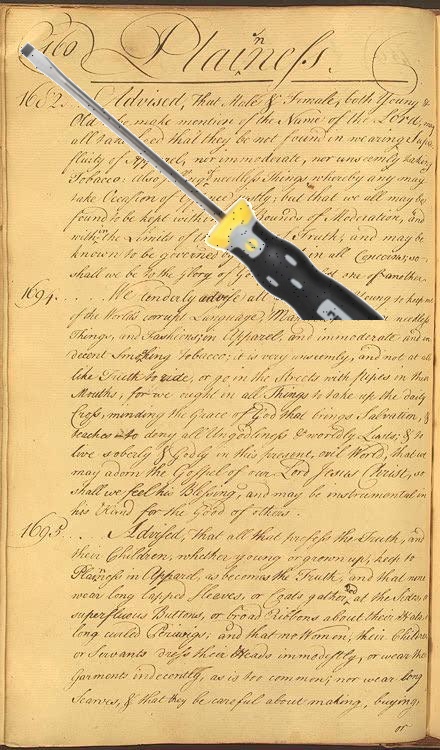 160 Plainess.
1682. Advised, That Male & Female, both Young &
Old be, make mention of the Name of the Lord, may
all take heed that they be not found in wearing Supe
fluity of Apparel, nor immoderate, nor unseemly taking
Tobacco: also needless Things whereby any may
take Occasion of but that we all may be
found to be kept within Bounds of Moderation, and
within the Limits of Truth; and may be
known to be governed in all Concerns, so
shall we be to the Glory of one of another.
1694. . . . We tenderly advise all Young to keep
of the World's corrupt Language, needless
Things, and Fashions, in Apparel, and immoderate and in
decent Smoking Tobacco; it is very unseemly, and not at all
like Truth to ride, or go in the Streets with pipes in their
Mouths, for we ought in all Things to take up the daily
Cross, minding the Grace of God that brings Salvation, &
teaches to deny all Ungodliness & worldly Lusts, & to
live soberly & Godly in this present, evil World, that we
may adorn the Gospel of our Lord Jesus Christ, so
shall we feel his Blessing, and may be instrumental in
his Hand for the Good of others.
1695. . . Advised, that all that profess the Truth, and
their Children, whether young or grown up, keep to
Plainess in Apparel, as becomes the Truth, and that none
wear long lapped Sleeves, or Coats gather'd at the Sides, or
superfluous Buttons, or broad Ribbons about their Hats, or
long curled Perriwigs, and that no Women, their Children
or Servants dress their Heads immodestly, or wear their
Garments indecently, as is too common; nor wear long
Scarves, & that they be careful about making, buying,
or